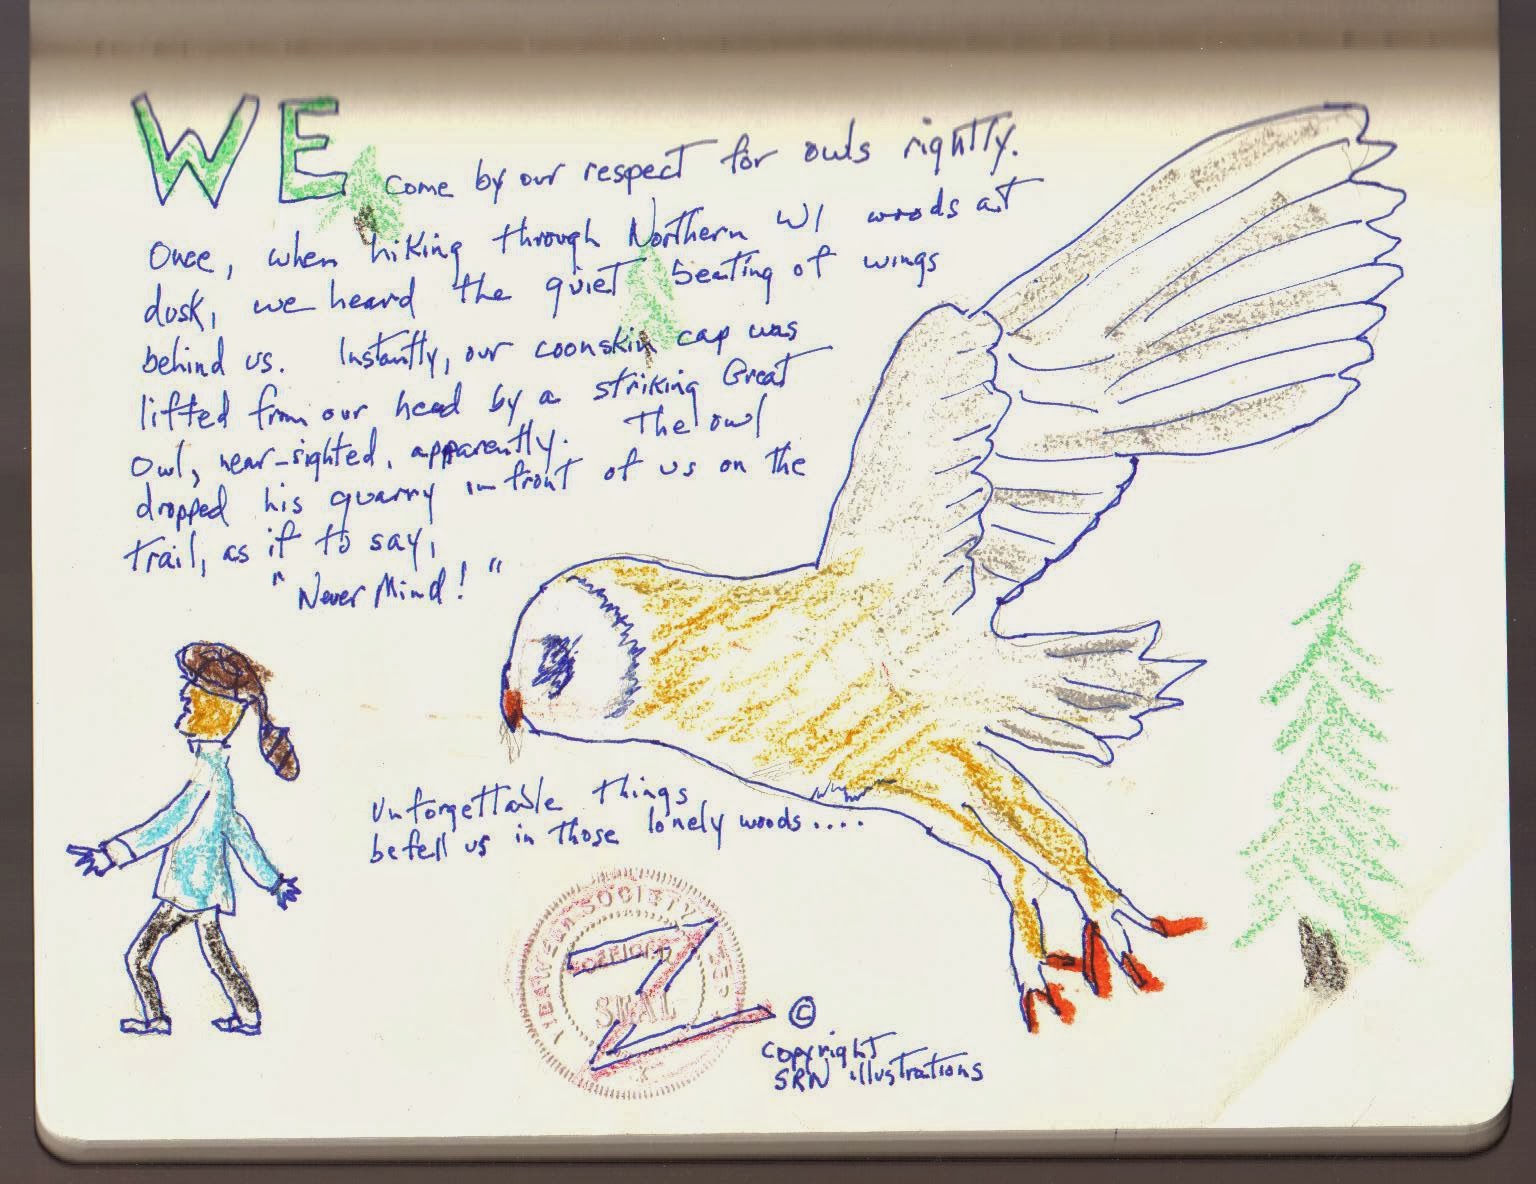 WE come by our respect for owls rightly.
Once, when hiking through Northern WI woods at
dusk, we heard the quiet beating of wings
behind us. Instantly, our coonskin cap was
lifted from our head by a striking Great
Owl, near-sighted, apparently. The owl
dropped his quarry in front of us on the
trail, as if to say,
"Never Mind!"
Unforgettable things
befell us in those lonely woods....
SOCIETY
OFFICIAL
SEAL
Z
©
Copyright
SRN illustrations